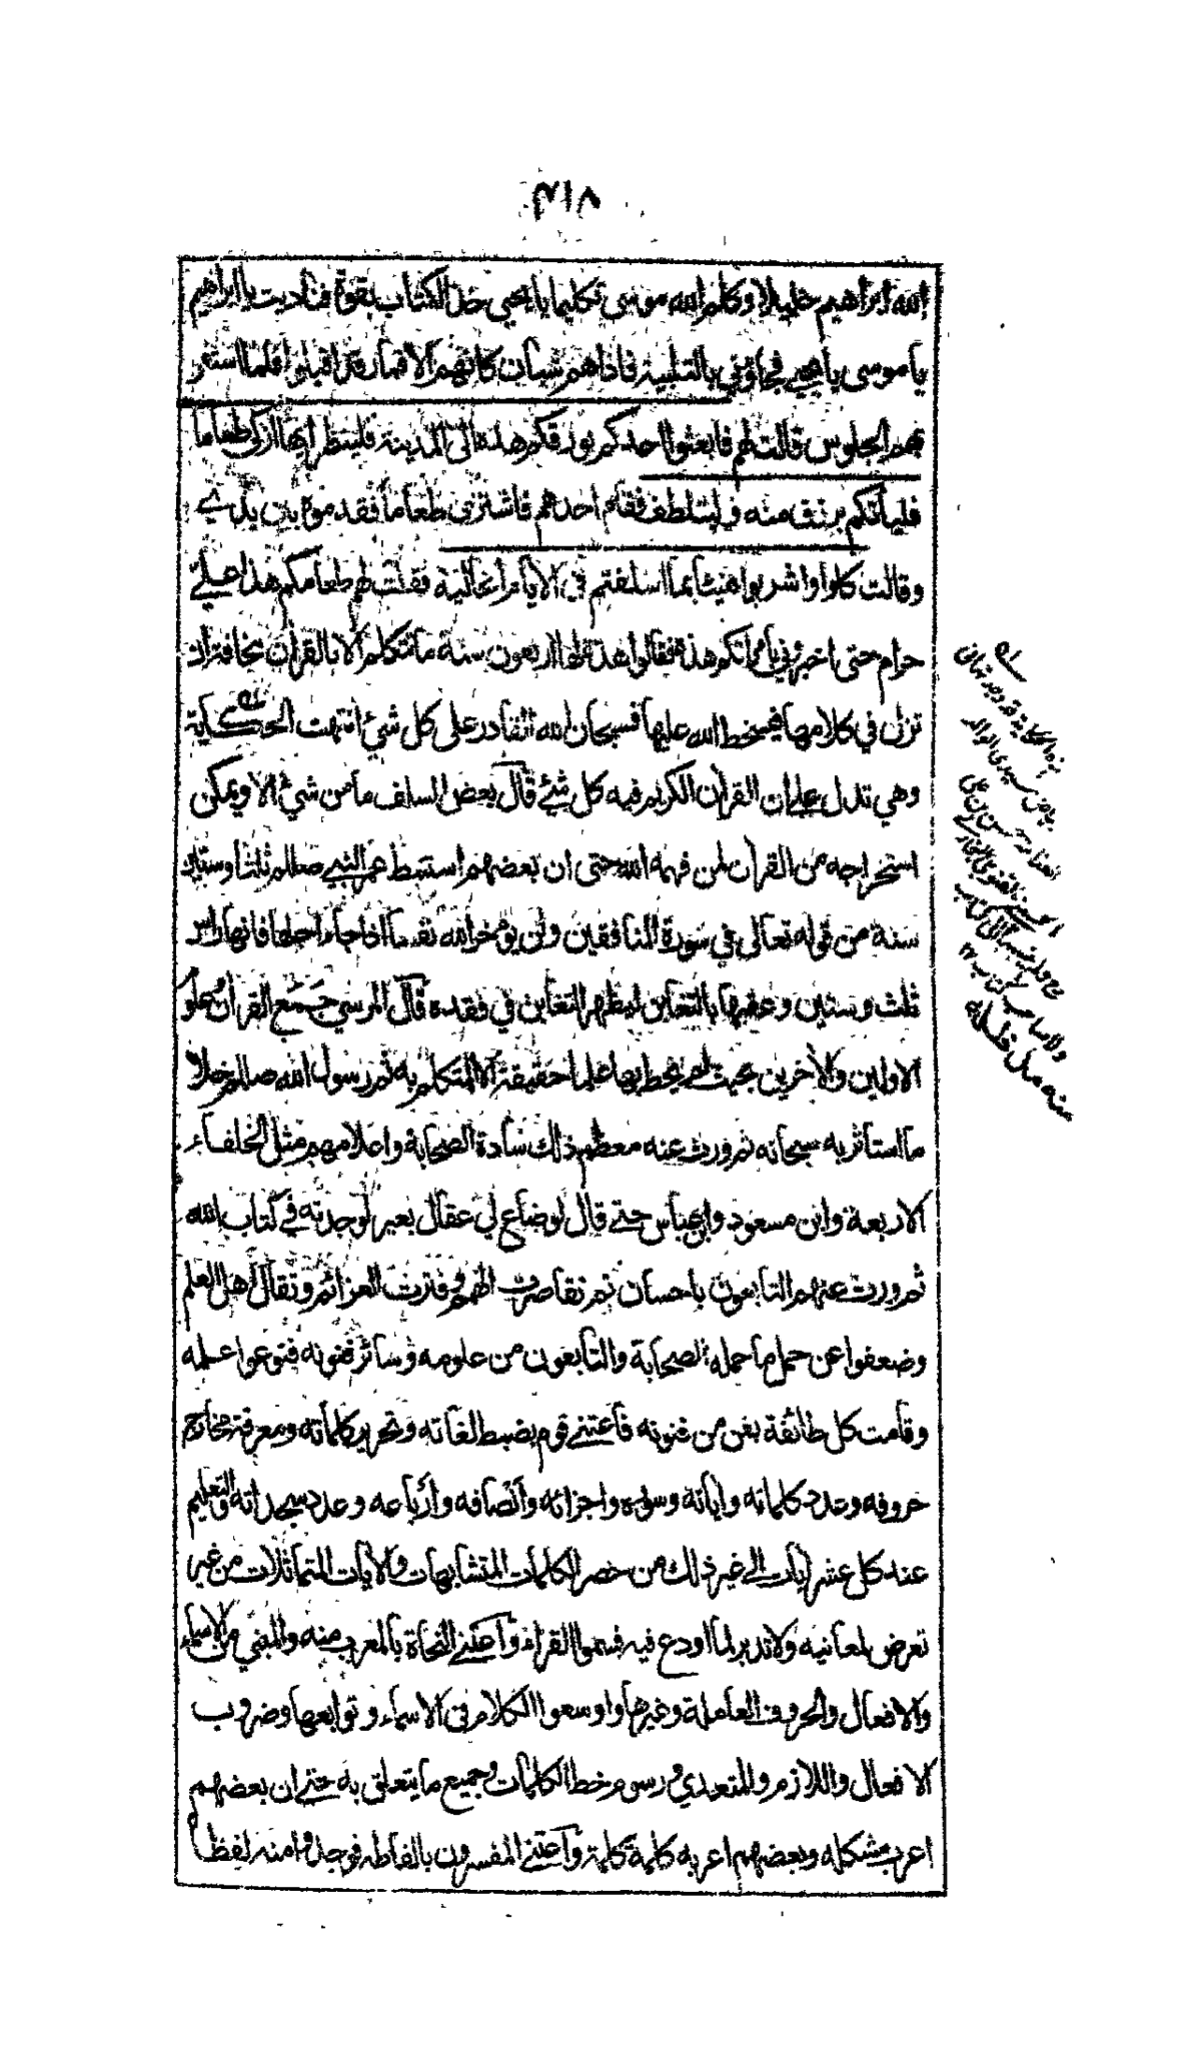 ۴۱۸
الله ابراهيم خليلا وكلم الله موسى تكليما يا يحيى خذ الكتاب بقوة فناديت يا ابراهيم
يا موسى يا يحيى فجاؤني بالتلبية فاذا هم شبان كانهم الاقمار قد اقبلوا فلما استقر
بهم الجلوس قالت لهم فابعثوا احدكم بورقكم هذه الى المدينة فلينظر ايها ازكى طعاما
فليأتكم برزق منه وليتلطف فقام احدهم فاشترى طعاما فقدموه بين يدي
وقالت كلوا واشربوا هنيئا بما اسلفتم في الايام الخالية فقلت لهم طعامكم هذا علي
حرام حتى اخبروني بامراتكم هذه فقالوا هذه لها اربعون سنة ما تتكلم الا بالقران مخافة ان
تزل في كلامها فيسخط الله عليها فسبحان الله القادر على كل شيء انتهت الحكاية
وهي تدل على ان القران الكريم فيه كل شيء قال بعض السلف ما من شيء الا ويمكن
استخراجه من القران لمن فهمه الله حتى ان بعضهم استنبط عمر النبي صللم ثلثا وستين
سنة من قوله تعالى في سورة المنافقين ولن يؤخر الله نفسا اذا جاء اجلها فانها راس
ثلث وستين وعقبها بالتغابن ليظهر التغابن في فقده قال المرسي جمع القران علو
الاولين والاخرين بحيث لم يحط بها علما حقيقة الا المتكلم به ثم رسول الله صللم خلا
ما استاثر به سبحانه ثم ورث عنه معظم ذلك سادة الصحابة واعلامهم مثل الخلفاء
الاربعة وابن مسعود وابن عباس حتى قال لو ضاع لي عقال بعير لوجدته في كتاب الله
ثم ورث عنهم التابعون باحسان ثم تقاصرت الهمم وفترت العزائم وتقال اهل العلم
وضعفوا عن حمل ما حمله الصحابة والتابعون من علومه وسائر فنونه فنوعوا علمه
وقامت كل طائفة بفن من فنونه فاعتنى قوم بضبط لغاته وتحرير كلماته ومعرفة مخارج
حروفه وعدد كلماته واياته وسوره واجزائه وانصافه وارباعه وعدد سجداته والتعليم
عند كل عشر ايات الى غير ذلك من حصر الكلمات المتشابهات والايات المتماثلات من غير
تعرض لمعانيه ولا تدبر لما اودع فيه فسموا القراء واعتنى النحاة بالمعرب منه والمبني من الاسماء
والافعال والحروف العاملة وغيرها واوسعوا الكلام في الاسماء وتوابعها وضروب
الافعال واللازم والمتعدي ورسوم خط الكلمات وجميع ما يتعلق به حتى ان بعضهم
اعرب مشكله وبعضهم اعربه كلمة كلمة واعتنى المفسرون بالفاظه فوجدوا منه لفظا